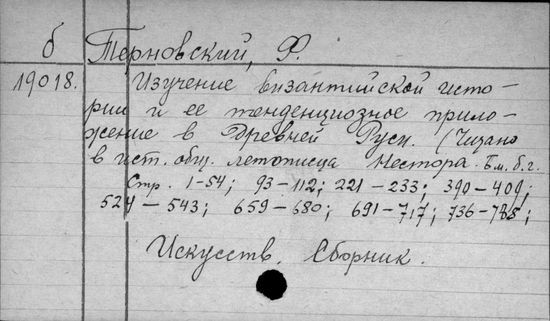 б Терновский, Ф.
19018. Изучение византийской исто-
рии и ее тенденциозное прило-
жение в Древней Руси. (Читано
в ист. общ. летописца Нестора. Б.м. б.г.
Стр. 1-54; 93-112; 221-233; 390-409;
524-543; 659-680; 691-717; 736-788;
Искусств. Сборник.